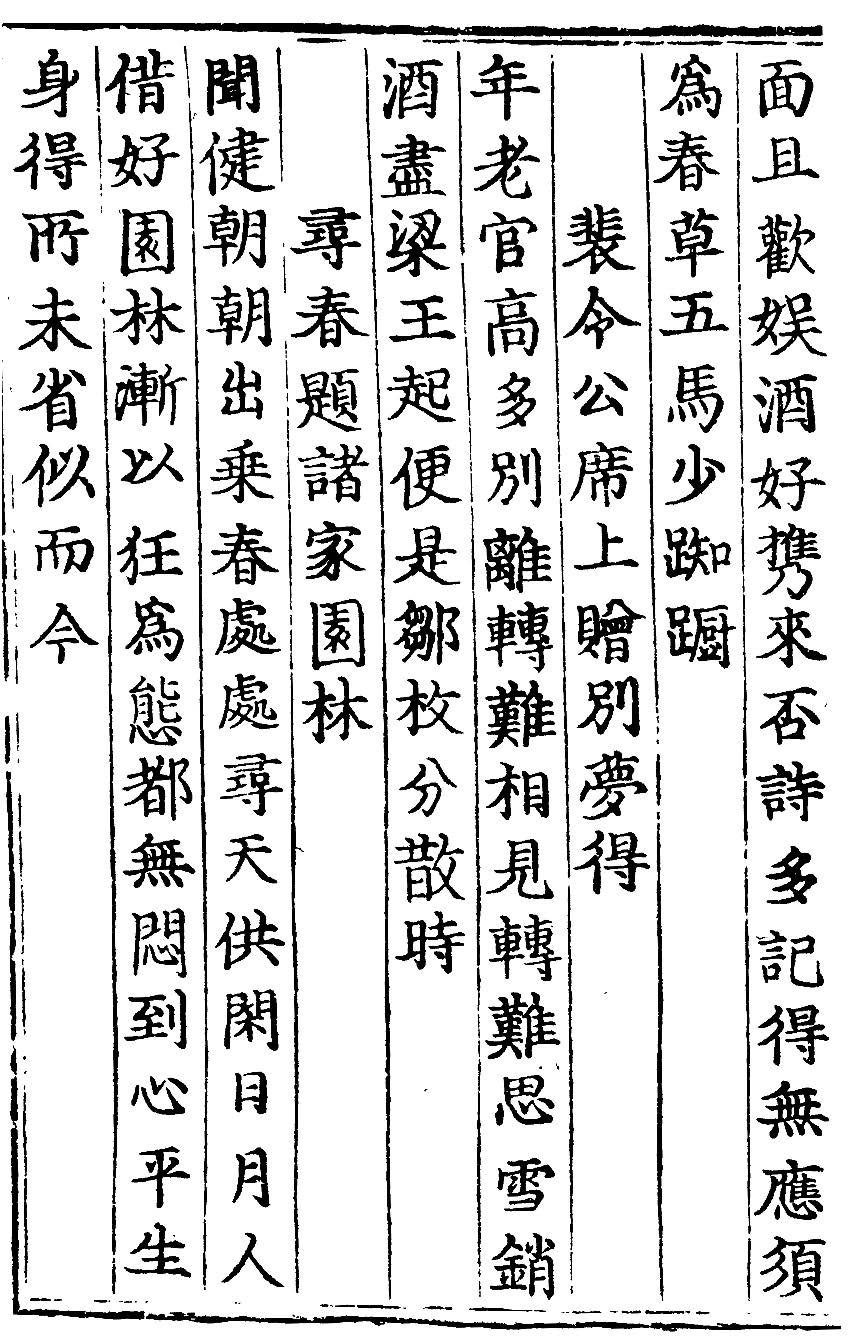 面且歡娱酒好携來否詩多記得無應須
爲春草五馬少踟蹰
裴令公席上贈別夢得
年老官高多別離轉難相見轉難思雪銷
酒盡梁王起便是鄒枚分散時
尋春題諸家園林
聞健朝朝出乗春處處尋天供閑日月人
借好園林漸以狂爲態都無悶到心平生
身得所未省似而今